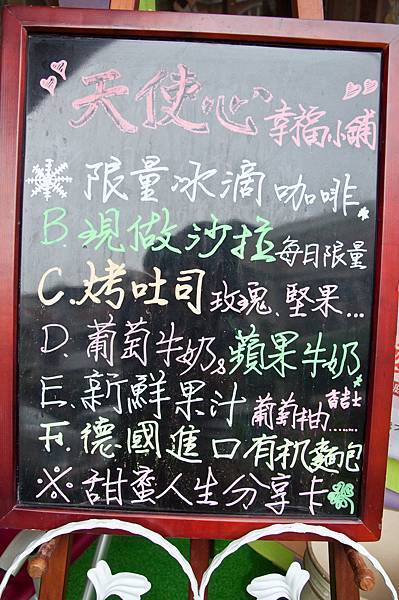 天使心 幸福小舖
限量冰滴咖啡
B. 現做沙拉 每日限量
C. 烤吐司 玫瑰、堅果...
D. 葡萄牛奶&蘋果牛奶
E. 新鮮果汁 葡萄柚 香吉士......
F. 德國進口有机麵包
※甜蜜人生分享卡